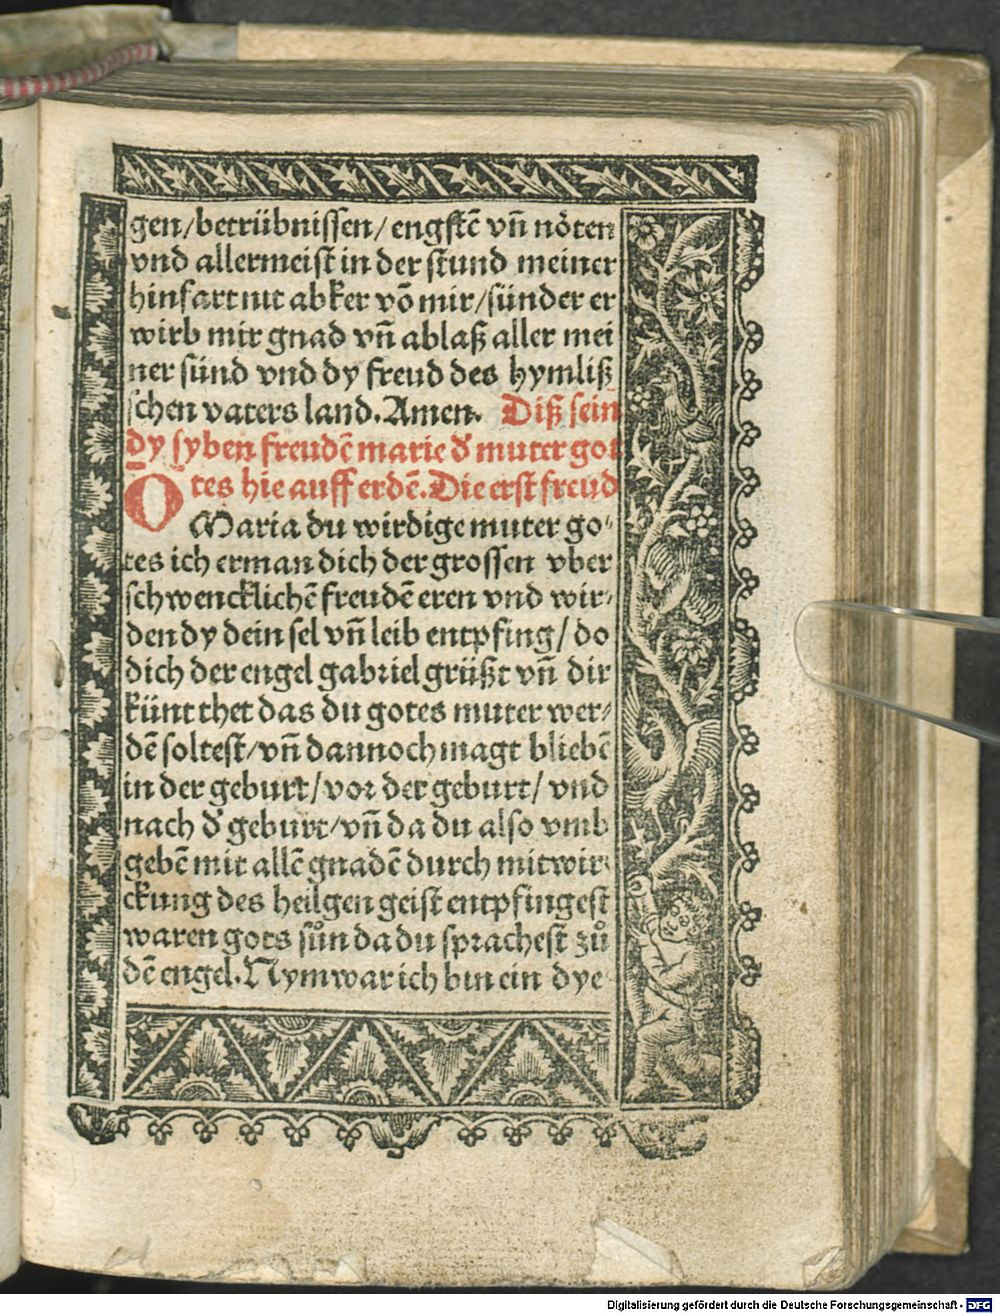 gen/betrübnissen/engstē vn̄ nöten
vnd allermeist in der stund meiner
hinfart nit abker vō mir/sünder er
wirb mir gnad vn̄ ablaß aller mei
ner sünd vnd dy freud des hymliß
schen vaters land. Amen. Diß sein
dy syben freudē marie đ muter got
tes hie auff erdē. Die erst freud
O Maria du wirdige muter go⸗
tes ich erman dich der grossen vber
schwencklichē freudē eren vnd wir⸗
den dy dein sel vn̄ leib entpfing/do
dich der engel gabriel grüßt vn̄ dir
künt thet das du gotes muter wer⸗
dē soltest/vn̄ dannoch magt bliebē
in der geburt/vor der geburt/vnd
nach đ geburt/vn̄ da du also vmb
gebē mit allē gnadē durch mitwir⸗
ckung des heilgen geist entpfingest
waren gots suͦn da du sprachest zuͦ
dē engel. Nym war ich bin ein dye
Digitalisierung gefördert durch die Deutsche Forschungsgemeinschaft - DFG